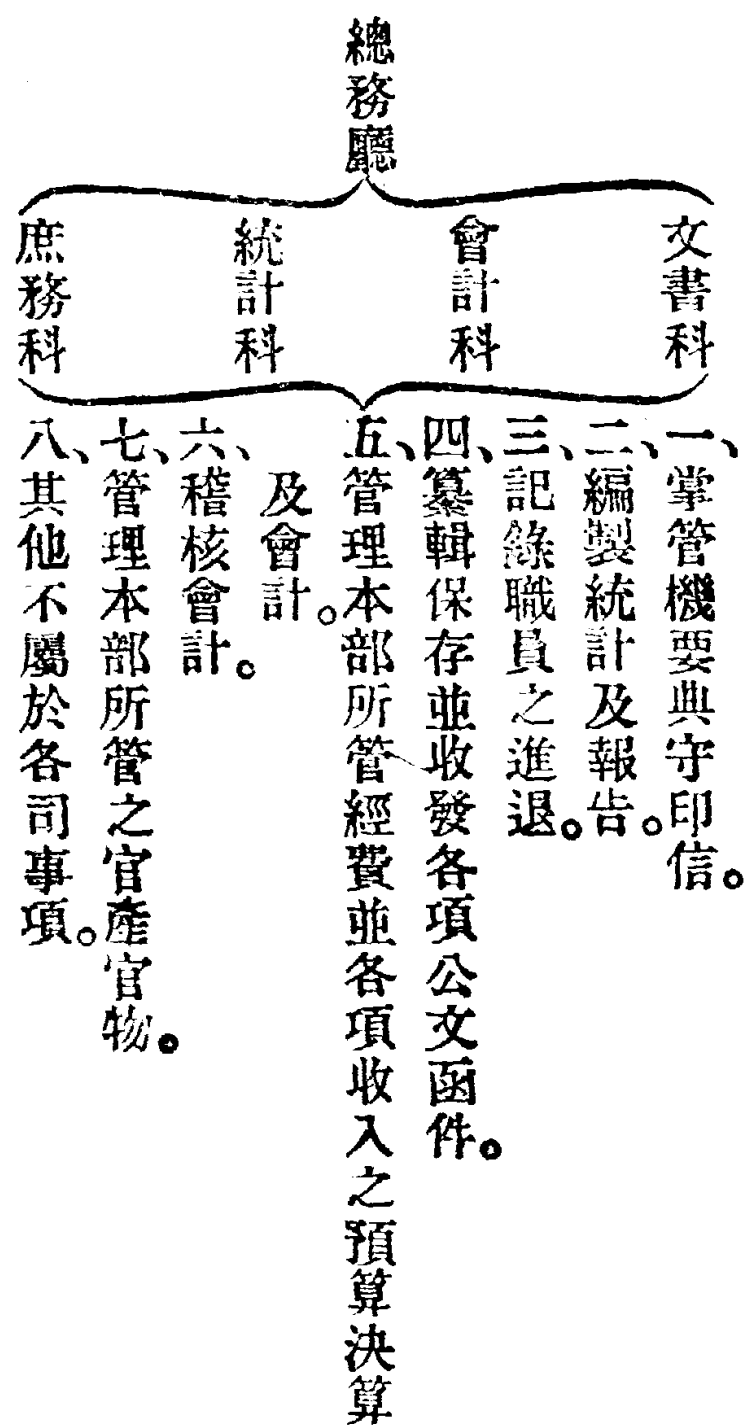 總務廳
文書科
會計科
統計科
庶務科
一、掌管機要典守印信。
二、編製統計及報告。
三、記錄職員之進退。
四、纂輯保存並收發各項公文函件。
五、管理本部所管經費並各項收入之預算決算
及會計。
六、稽核會計。
七、管理本部所管之官產官物。
八、其他不屬於各司事項。